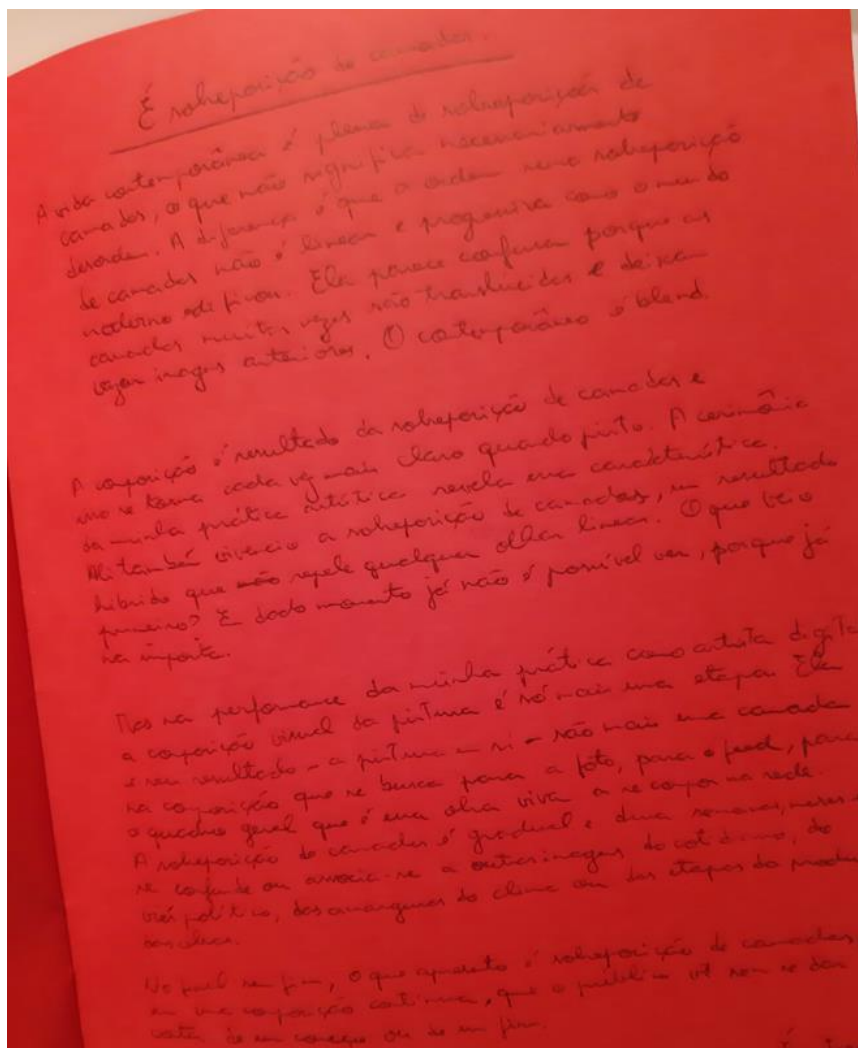 É sobreposição de camadas.
A vida contemporânea é plena de sobreposição de
camadas, o que não significa necessariamente
desordem. A diferença é que a ordem nessa sobreposição
de camadas não é linear e progressiva como o mundo
moderno Ela parece confusa porque as
camadas muitas vezes são translucidas e deixam
vazar imagens anteriores. O contemporâneo é blend.
A composição é resultado da sobreposição de camadas e
isso se torna cada vez mais claro quando pinto. A cerimônia
da minha prática artística revela essa característica.
Ali também vivencio a sobreposição de camadas, um resultado
híbrido que não repele qualquer olhar linear. O que veio
primeiro? E dado momento já não é possível ver, porque já
não importa.
Mas na performance da minha prática como artista digital
a composição visual da pintura é só mais uma etapa. Ela
e seu resultado - a pintura em si - são mais uma camada
na composição que se busca para a foto, para o feed, para
o quadro geral que é uma obra viva a se compor na rede.
A sobreposição de camadas é gradual e dura semanas, meses e
se confunde ou associa-se a outras imagens do cotidiano, do
viés político, das do clima ou das etapas da
das obras.
No sem fim, o que apresento é sobreposição de camadas
em uma composição contínua, que o público vê sem se dar
conta de um começo ou de um fim.